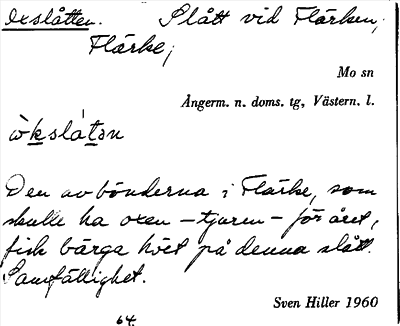 Oxslåtten. Slått vid Flärken,
Flärke,
Mo sn
Ångerm. n. doms. tg, Västern. l.
ò̀kslá̀tən
Den av bönderna i Flärke, som
skulle ha oxen – tjuren – för året,
fick bärga höet på denna slått.
Samfällighet.
Sven Hiller 1960
64.